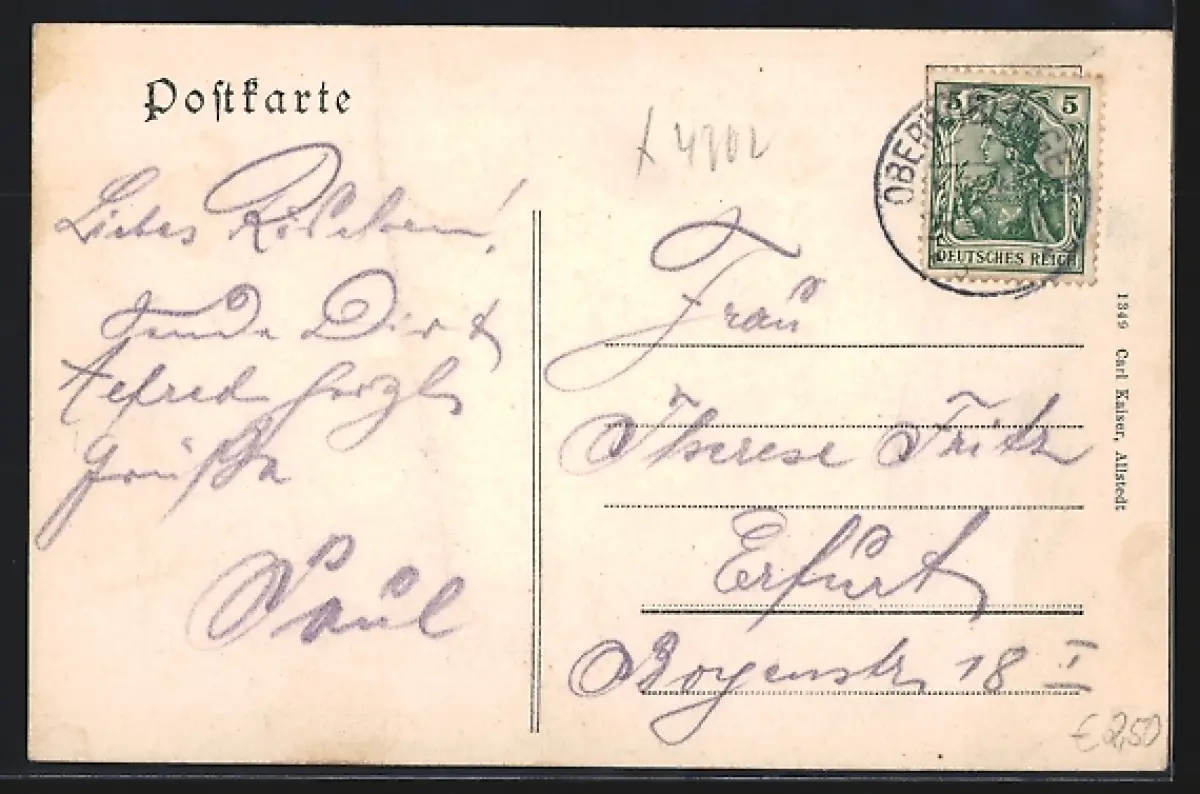 Postkarte
x 4702
Liebes Röschen!
sende Dir &
Alfred herzl.
Grüße
Paul
Frau
Therese Fritz
Erfurt
Boyenstr 18 I
5 5
DEUTSCHES REICH
1349 Carl Kaiser, Allstedt
€ 2,50